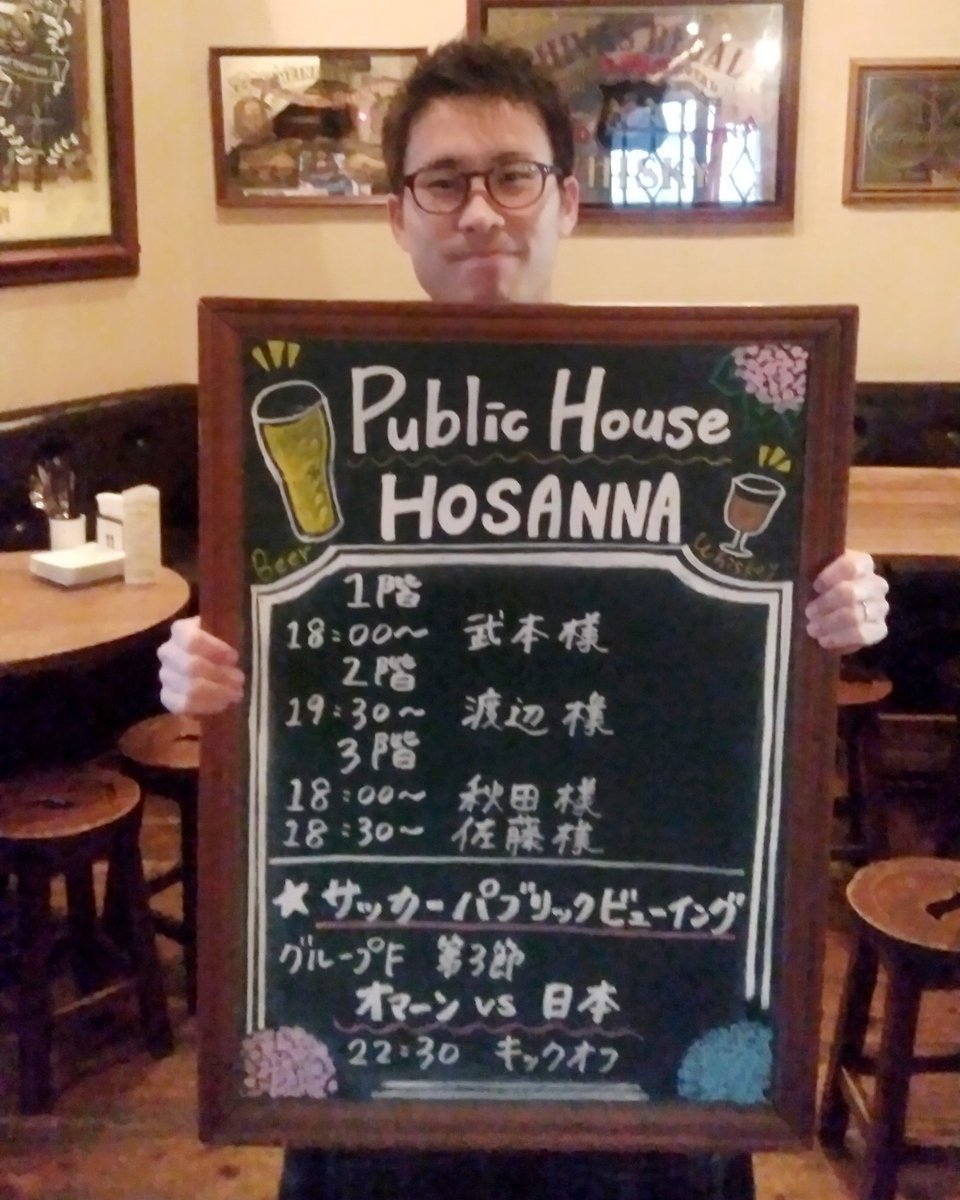 CHIVAS REGAL
WHISKY
Public House
HOSANNA
Beer
Whiskey
1階
18:00〜 武本様
2階
19:30〜 渡辺様
3階
18:00〜 秋田様
18:30〜 佐藤様
★サッカーパブリックビューイング
グループF 第3節
オマーン vs 日本
22:30 キックオフ